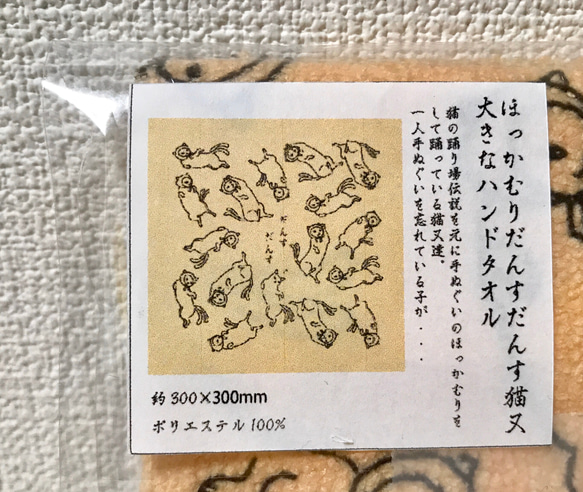 ほっかむりだんすだんす猫又
大きなハンドタオル
猫の踊り場伝説を元に手ぬぐいのほっかむりを
して踊っている猫又達。
一人手ぬぐいを忘れている子が・・・・
だんす
だんす
約300×300mm
ポリエステル100%